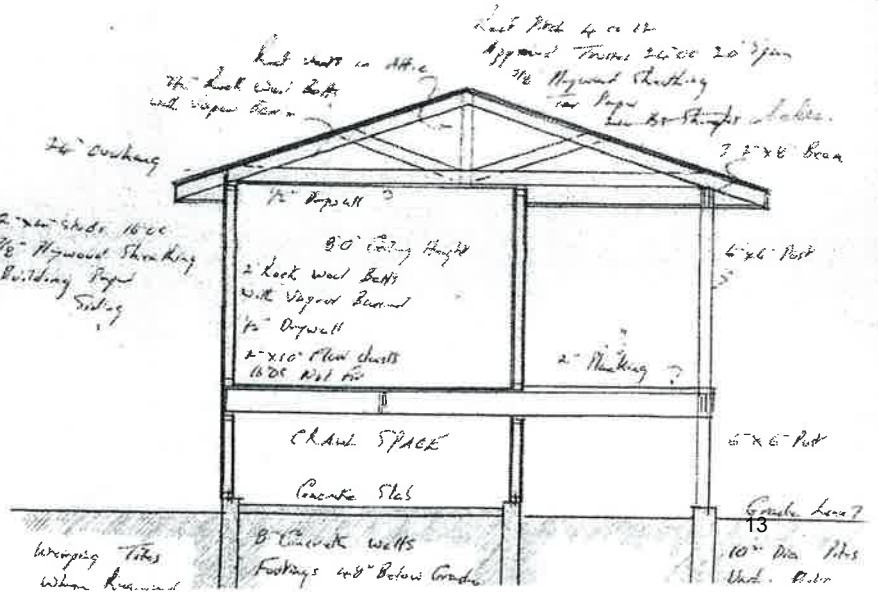 Roof Pitch 4 on 12
Approved Trusses 24" OC 20' Span
Plywood Sheathing
Tar Paper
Roof vents in Attic
Rock Wool Batts
with Vapor
24" overhang
2" x 8" Beam
Studs 16" OC
Plywood Sheathing
Building Paper
Siding
1/2" Drywall
8'0" Ceiling Height
Rock Wool Batts
with Vapour Barrier
1/2" Drywall
2" x 10" Floor Joists
16" OC
6" x 6" Post
2" Planking ?
CRAWL SPACE
6" x 6" Post
Concrete Slab
Grade Line ?
13
Weeping Tiles
Where Required
8" Concrete Walls
Footings 48" Below Grade
10" Dia